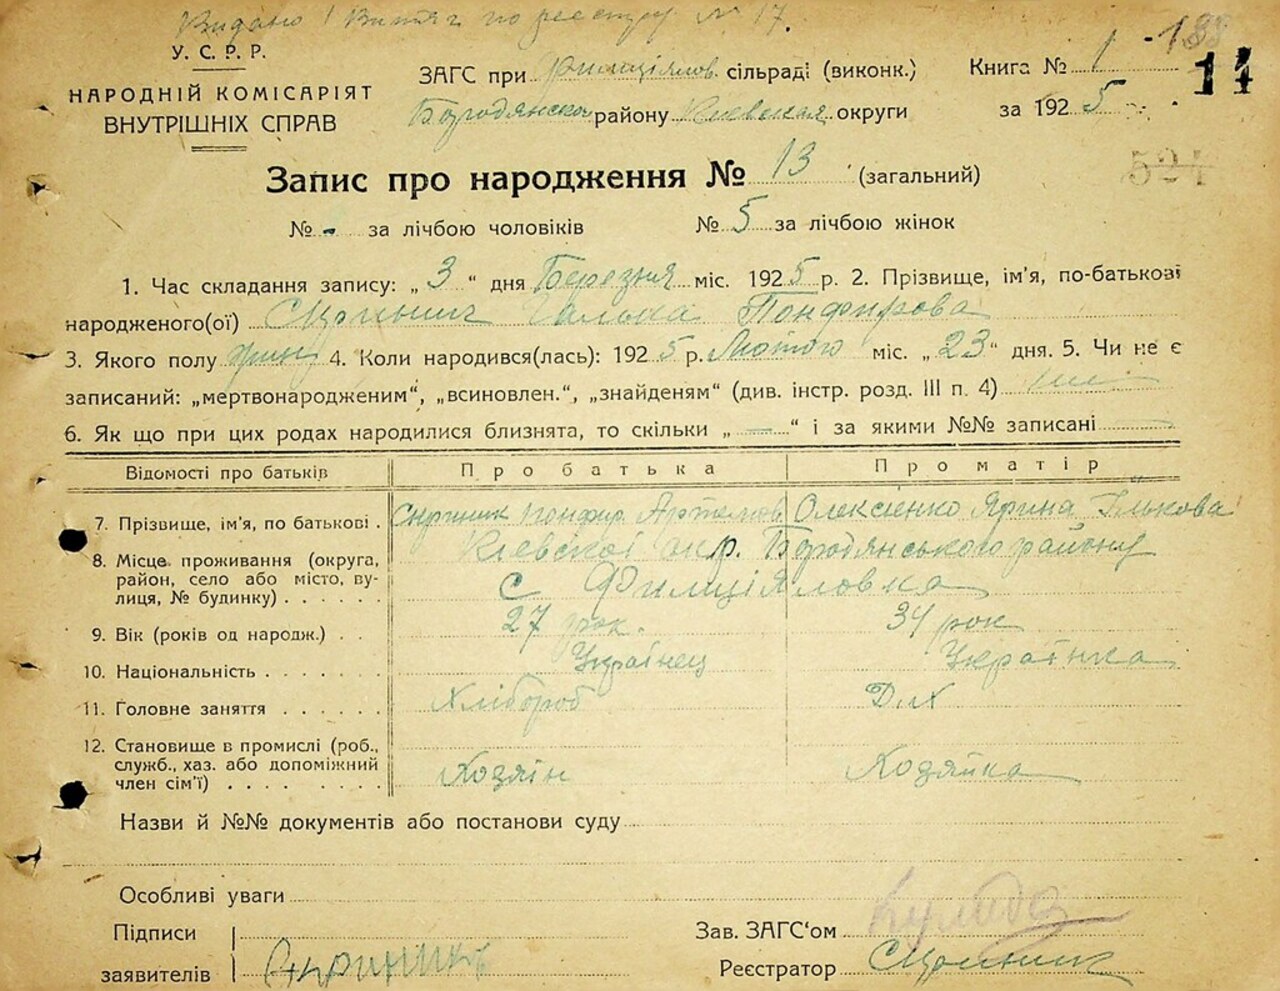 Видано 1 Витяг по реєстру № 17.
У. С. Р. Р.
НАРОДНІЙ КОМІСАРІЯТ
ВНУТРІШНІХ СПРАВ
ЗАГС при сільраді (виконк.)
району Киевская округи
Книга № 1
за 1925
14
524
Запис про народження № 13 (загальний)
№ - за лічбою чоловіків № 5 за лічбою жінок
1. Час складання запису: „3“ дня Березня міс. 1925 р. 2. Прізвище, ім'я, по-батькові
народженого(ої) Галька Понфирова
3. Якого полу жин 4. Коли народився(лась): 1925 р. Лютого міс. „23“ дня. 5. Чи не є
записаний: „мертвонародженим“, „всиновлен.“, „знайденям“ (див. інстр. розд. III п. 4)
6. Як що при цих родах народилися близнята, то скільки „—“ і за якими №№ записані
Відомості про батьків Про батька Про матір
7. Прізвище, ім'я, по батькові . Понфир. Артемов Олексієнко Ярина Ількова
8. Місце проживання (округа, район, село або місто, вулиця, № будинку) Киевскоі окр. Бородянського району
с Филиціяловка
9. Вік (років од народж.) . . 27 рок. 34 рок
10. Національність . . . . . . . Українец Українка
11. Головне заняття . . . . . . Хлібороб Д.Х
12. Становище в промислі (роб., служб., хаз. або допоміжний член сім'ї) . . . . . . . . . Хозяїн Хозяйка
Назви й №№ документів або постанови суду
Особливі уваги
Підписи
заявителів
Зав. ЗАГС'ом
Реєстратор